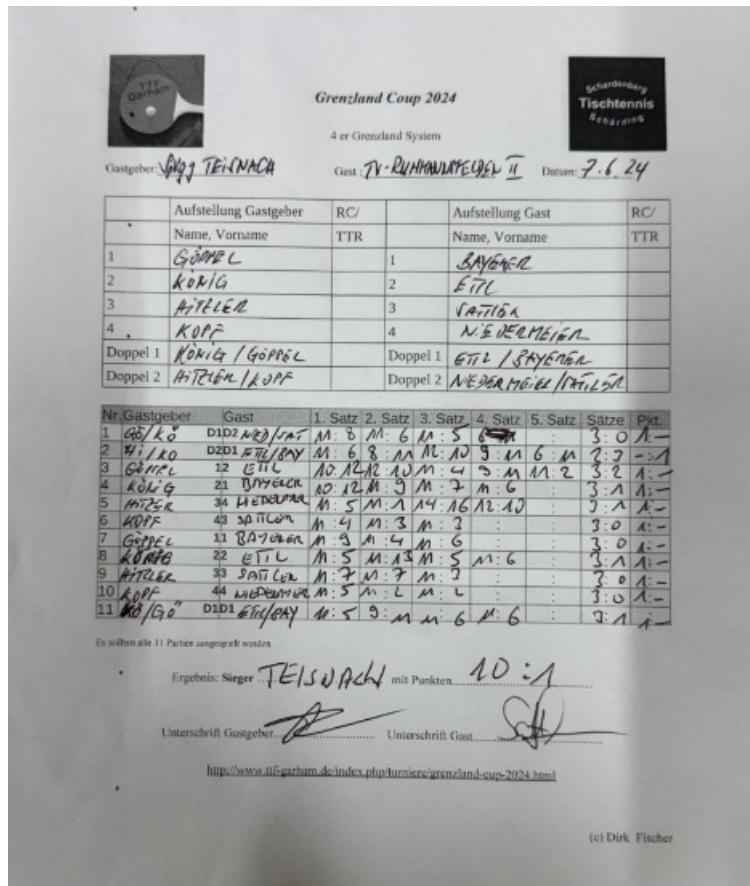 TTF Garham
Schardenberg
Tischtennis
Schärding
Grenzland Coup 2024
4 er Grenzland System
Gastgeber: SpVgg TEISNACH Gast: TV-RUHMANNSFELDEN II Datum: 7.6.24
Aufstellung Gastgeber RC/ Aufstellung Gast RC/
Name, Vorname TTR Name, Vorname TTR
1 GÖPPEL 1 BAYERER
2 KÖNIG 2 ETTL
3 HITZLER 3 SATTLER
4 KOPF 4 NIEDERMEIER
Doppel 1 KÖNIG / GÖPPEL Doppel 1 ETTL / BAYERER
Doppel 2 HITZLER / KOPF Doppel 2 NIEDERMEIER / SATTLER
Nr. Gastgeber Gast 1. Satz 2. Satz 3. Satz 4. Satz 5. Satz Sätze Pkt.
1 GÖ/KÖ D1D2 NIED/SAT 11:8 11:6 11:5 : 3:0 1:-
2 HI/KO D2D1 ETTL/BAY 11:6 8:11 12:10 9:11 6:11 2:3 -:1
3 GÖPPEL 12 ETTL 10:12 12:10 11:4 9:11 11:2 3:2 1:-
4 KÖNIG 21 BAYERER 10:12 11:9 11:7 11:6 : 3:1 1:-
5 HITZLER 34 NIEDERMEIER 11:5 11:1 14:16 12:10 : 3:1 1:-
6 KOPF 43 SATTLER 11:4 11:3 11:3 : : 3:0 1:-
7 GÖPPEL 11 BAYERER 11:9 11:4 11:6 : : 3:0 1:-
8 KÖNIG 22 ETTL 11:5 11:13 11:5 11:6 : 3:1 1:-
9 HITZLER 33 SATTLER 11:7 11:7 11:3 : : 3:0 1:-
10 KOPF 44 NIEDERMEIER 11:5 11:2 11:2 : : 3:0 1:-
11 KÖ/GÖ D1D1 ETTL/BAY 11:5 9:11 11:6 11:6 : 3:1 1:-
Es sollten alle 11 Partien ausgespielt werden
Ergebnis: Sieger TEISNACH mit Punkten 10:1
Unterschrift Gastgeber Unterschrift Gast
http://www.ttf-garham.de/index.php/turniere/grenzland-cup-2024.html
(c) Dirk Fischer